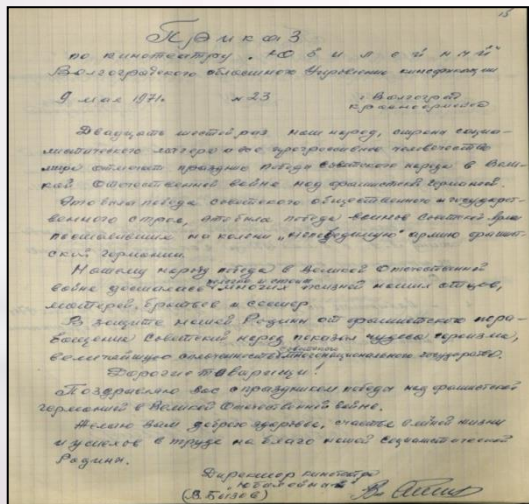 15
Приказ
по кинотеатру „Юбилейный"
Волгоградского областного Управления кинофикации
9 мая 1971г. №23 г. Волгоград
Красноармейск
Двадцать шестой раз наш народ, страны социа-
листического лагеря и все прогрессивное человечество
мира отмечают праздник победы советского народа в Вели-
кой Отечественной войне над фашистской Германией.
Это была победа советского общественного и государст-
венного строя, это была победа воинов Советской Армии
поставивших на колени „непобедимую" армию фашист-
ской Германии.
Нашему народу победа в Великой Отечественной
войне досталась многих жизней наших отцов,
матерей, братьев и сестер.
В защите нашей Родины от фашистского пора-
бощения Советский народ показал чудеса героизма,
величайшую сплоченность советского многонационального государства.
Дорогие товарищи!
Поздравляю вас с праздником победы над фашистской
Германией в Великой Отечественной войне.
Желаю Вам доброго здоровья, счастья в личной жизни
и успехов в труде на благо нашей Социалистической
Родины.
Директор кинотеатра
„Юбилейный"
(В. Бызов)